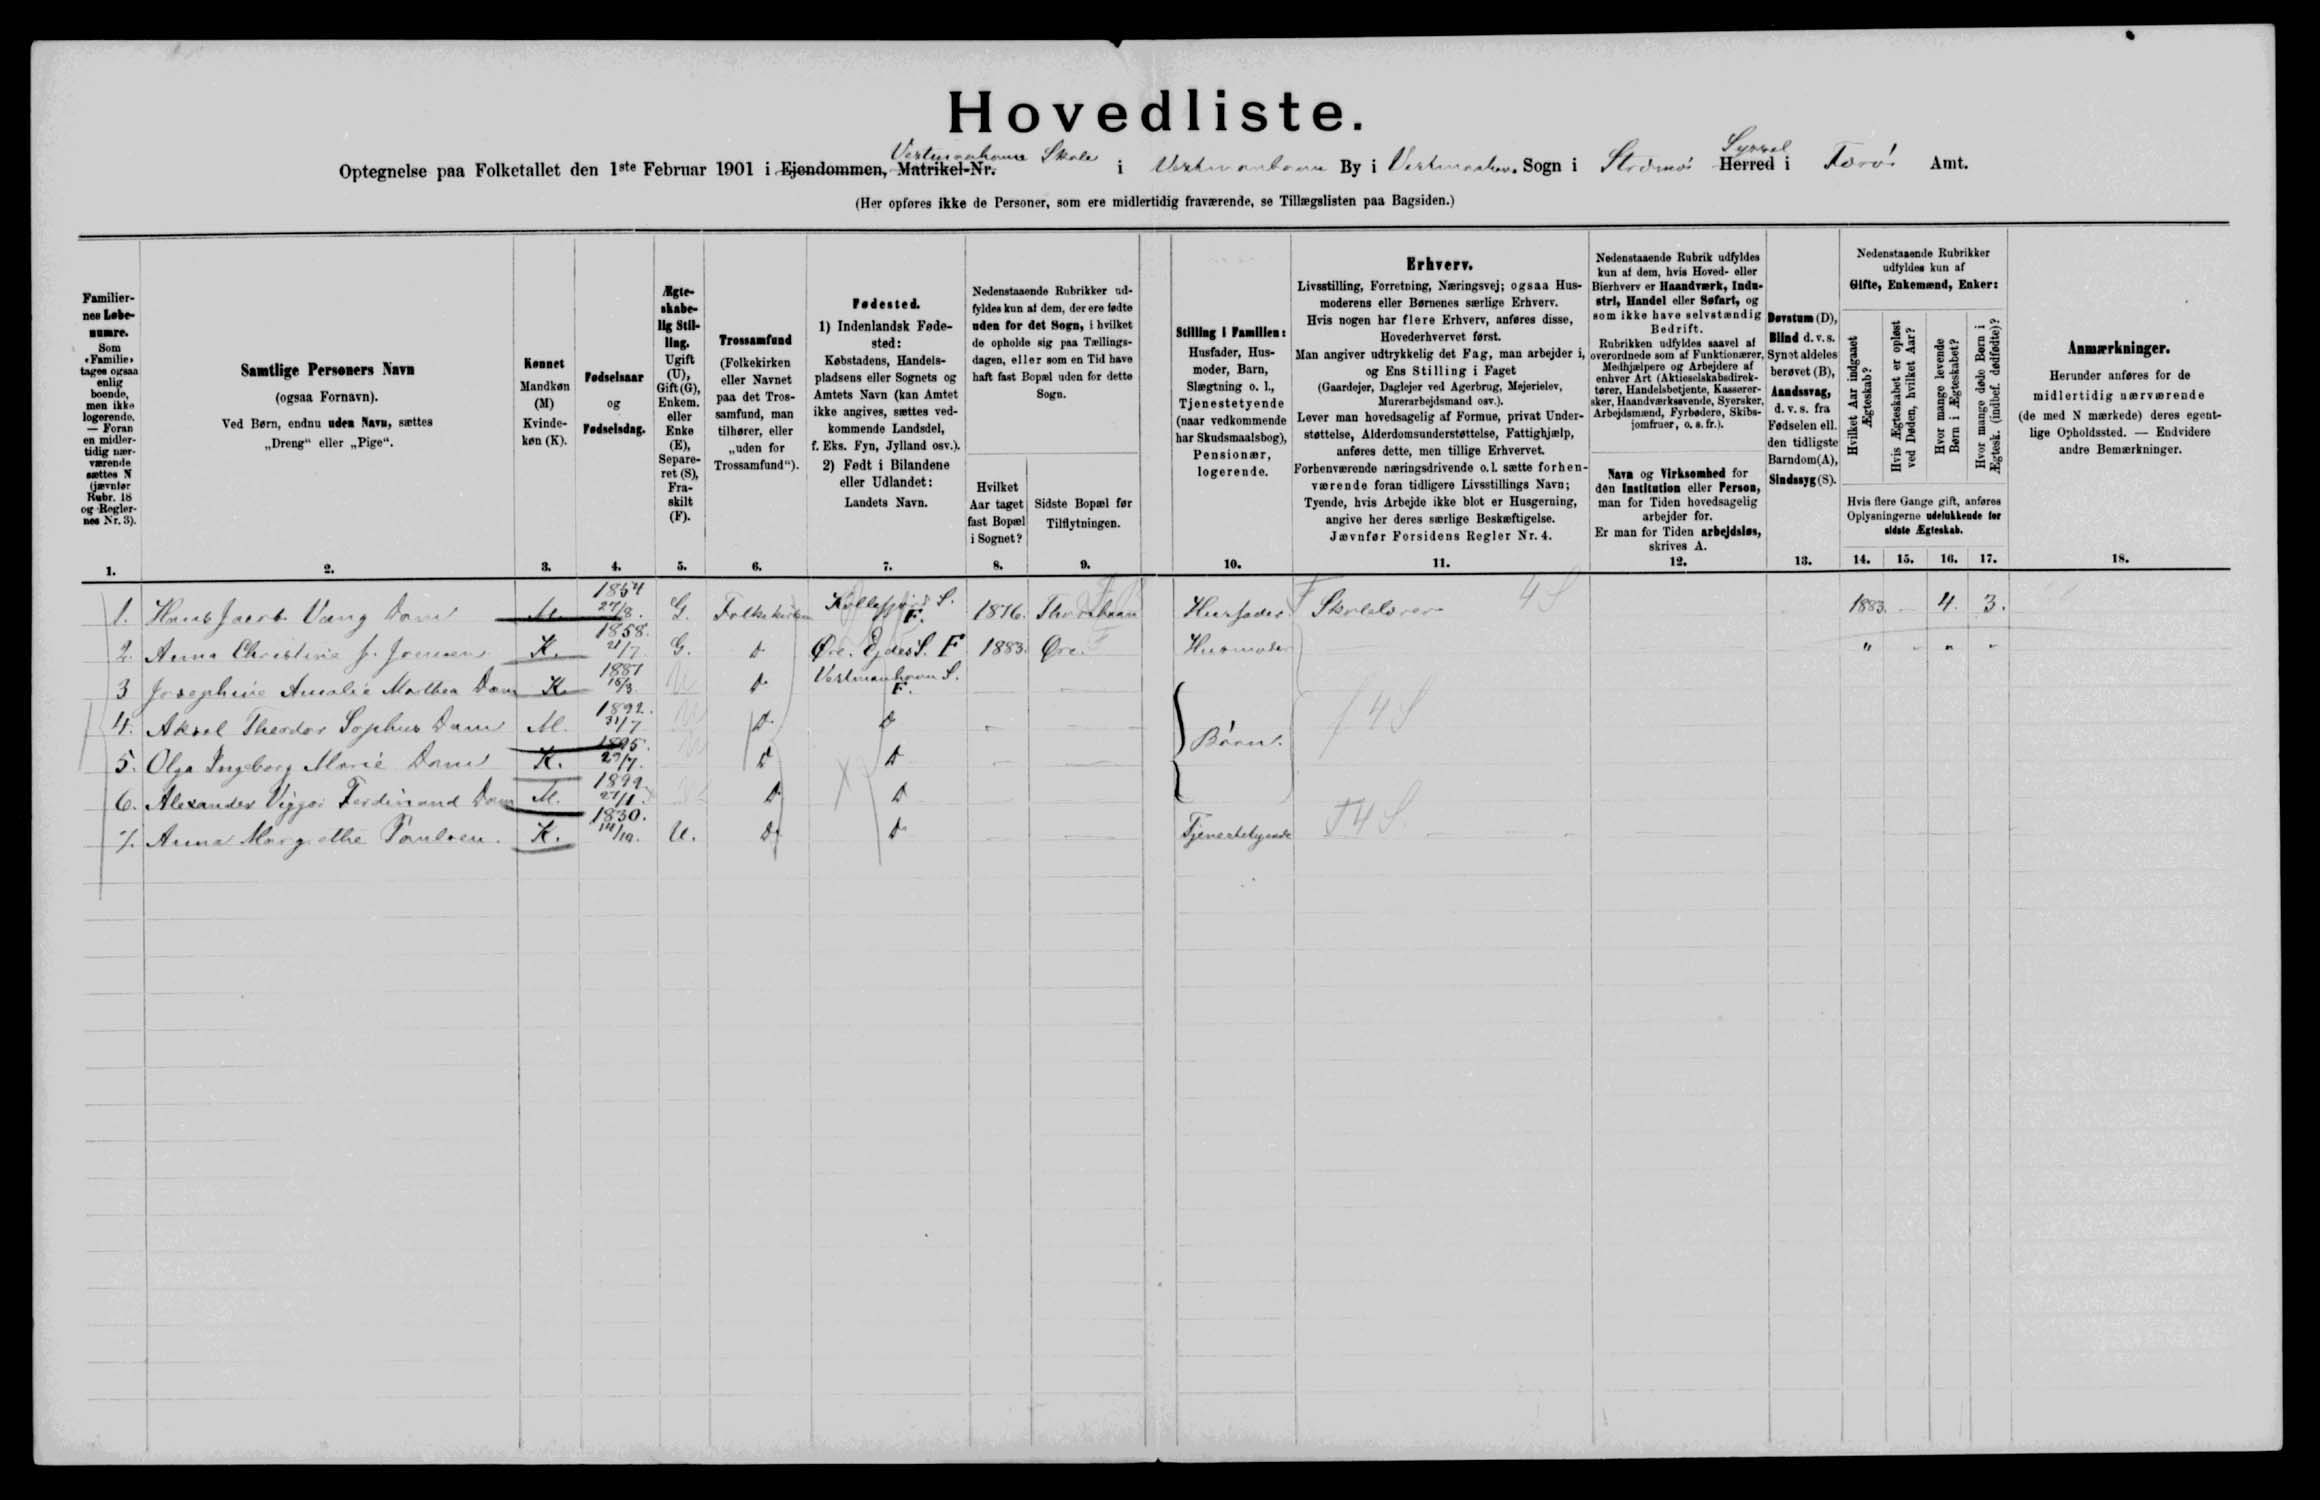 Hovedliste.
Optegnelse paa Folketallet den 1ste Februar 1901 i Ejendommen, Matrikel-Nr. Vestmanhavns Skole i Vestmanhavn By i Vestmanhavn Sogn i Strømø Herred Syssel i Færø Amt.
(Her opføres ikke de Personer, som ere midlertidig fraværende, se Tillægslisten paa Bagsiden.)
Familier-
nes Løbe-
numre.
Som
«Familie»
tages ogsaa
enlig
boende,
men ikke
logerende.
— Foran
en midler-
tidig nær-
værende
sættes N
(jævnfør
Rubr. 18
og Regler-
nes Nr. 3).
1.
Samtlige Personers Navn
(ogsaa Fornavn).
Ved Børn, endnu uden Navn, sættes
„Dreng“ eller „Pige“.
2.
Kønnet
Mandkøn
(M)
Kvinde-
køn (K).
3.
Fødselsaar
og
Fødselsdag.
4.
Ægte-
skabe-
lig Stil-
ling.
Ugift
(U),
Gift (G),
Enkem.
eller
Enke
(E),
Separe-
ret (S),
Fra-
skilt
(F).
5.
Trossamfund
(Folkekirken
eller Navnet
paa det Tros-
samfund, man
tilhører, eller
„uden for
Trossamfund“).
6.
Fødested.
1) IndenlandskFøde-
sted:
Købstadens, Handels-
pladsens eller Sognets og
Amtets Navn (kan Amtet
ikke angives, sættes ved-
kommende Landsdel,
f. Eks. Fyn, Jylland osv.).
2) Født i Bilandene
eller Udlandet:
Landets Navn.
7.
Nedenstaaende Rubrikker ud-
fyldes kun af dem, der ere fødte
uden for det Sogn, i hvilket
de opholde sig paa Tællings-
dagen, eller som en Tid have
haft fast Bopæl uden for dette
Sogn.
Hvilket
Aar taget
fast Bopæl
i Sognet?
8.
Sidste Bopæl før
Tilflytningen.
9.
Stilling i Familien:
Husfader, Hus-
moder, Barn,
Slægtning o. l.,
Tjenestetyende
(naar vedkommende
har Skudsmaalsbog),
Pensionær,
logerende.
10.
Erhverv.
Livsstilling, Forretning, Næringsvej; ogsaa Hus-
moderens eller Børnenes særlige Erhverv.
Hvis nogen har flere Erhverv, anføres disse,
Hovederhvervet først.
Man angiver udtrykkelig det Fag, man arbejder i,
og Ens Stilling i Faget
(Gaardejer, Daglejer ved Agerbrug, Mejerielev,
Murerarbejdsmand osv.).
Lever man hovedsagelig af Formue, privat Under-
støttelse, Alderdomsunderstøttelse, Fattighjælp,
anføres dette, men tillige Erhvervet.
Forhenværende næringsdrivende o. l. sætte forhen-
værende foran tidligere Livsstillings Navn;
Tyende, hvis Arbejde ikke blot er Husgerning,
angive her deres særlige Beskæftigelse.
Jævnfør Forsidens Regler Nr. 4.
11.
Nedenstaaende Rubrik udfyldes
kun af dem, hvis Hoved- eller
Bierhverv er Haandværk, Indu-
stri, Handel eller Søfart, og
som ikke have selvstændig
Bedrift.
Rubrikken udfyldes saavel af
overordnede som af Funktionærer,
Medhjælpere og Arbejdere af
enhver Art (Aktieselskabsdirek-
tører, Handelsbetjente, Kasserer-
sker, Haandværkssvende, Syersker,
Arbejdsmænd, Fyrbødere, Skibs-
jomfruer, o. s. fr.).
Navn og Virksomhed for
den Institution eller Person,
man for Tiden hovedsagelig
arbejder for.
Er man for Tiden arbejdsløs,
skrives A.
12.
Døvstum (D),
Blind d. v. s.
Synet aldeles
berøvet (B),
Aandssvag,
d. v. s. fra
Fødselen ell.
den tidligste
Barndom (A),
Sindssyg (S).
13.
Nedenstaaende Rubrikker
udfyldes kun af
Gifte, Enkemænd, Enker:
Hvilket Aar indgaaet
Ægteskab?
Hvis Ægteskabet er opløst
ved Døden, hvilket Aar?
Hvor mange levende
Børn i Ægteskabet?
Hvor mange døde Børn i
Ægtesk. (indbef. dødfødte)?
Hvis flere Gange gift, anføres
Oplysningerne udelukkende for
sidste Ægteskab.
14. 15. 16. 17.
Anmærkninger.
Herunder anføres for de
midlertidig nærværende
(de med N mærkede) deres egent-
lige Opholdssted. — Endvidere
andre Bemærkninger.
18.
1. Hans Jacob Vang Dam M. 1854 27/8. G. Folkekirken Kollefjord S. F. 1876. Thorshavn Husfader Skolelærer 4 S 1883. - 4. 3.
2. Anna Christine f. Joensen K. 1858. 21/7. G. D Øre. Ejdes S. F 1883. Øre. Husmoder " " " "
3 Josephine Amalie Marthea Dam K. 1887 18/3. U D Vestmanhavn S. F. — —
4. Aksel Theodor Sophus Dam M. 1892. 31/7 U D D — — Børn. 4 S
5. Olga Ingeborg Marie Dam K. 1895. 29/7. U D D — —
6. Alexander Viggo Ferdinand Dam M. 1899 27/1. U D D — —
7. Anna Margrethe Poulsen. K. 1830. 14/10. U. D D — — Tjenestetyende 4 S — — -